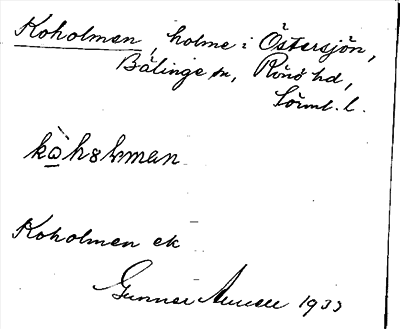 Koholmen, holme i Östersjön,
Bälinge sn, Rönö hd,
Sörml. l.
Koholmen ek
Gunnar 1933